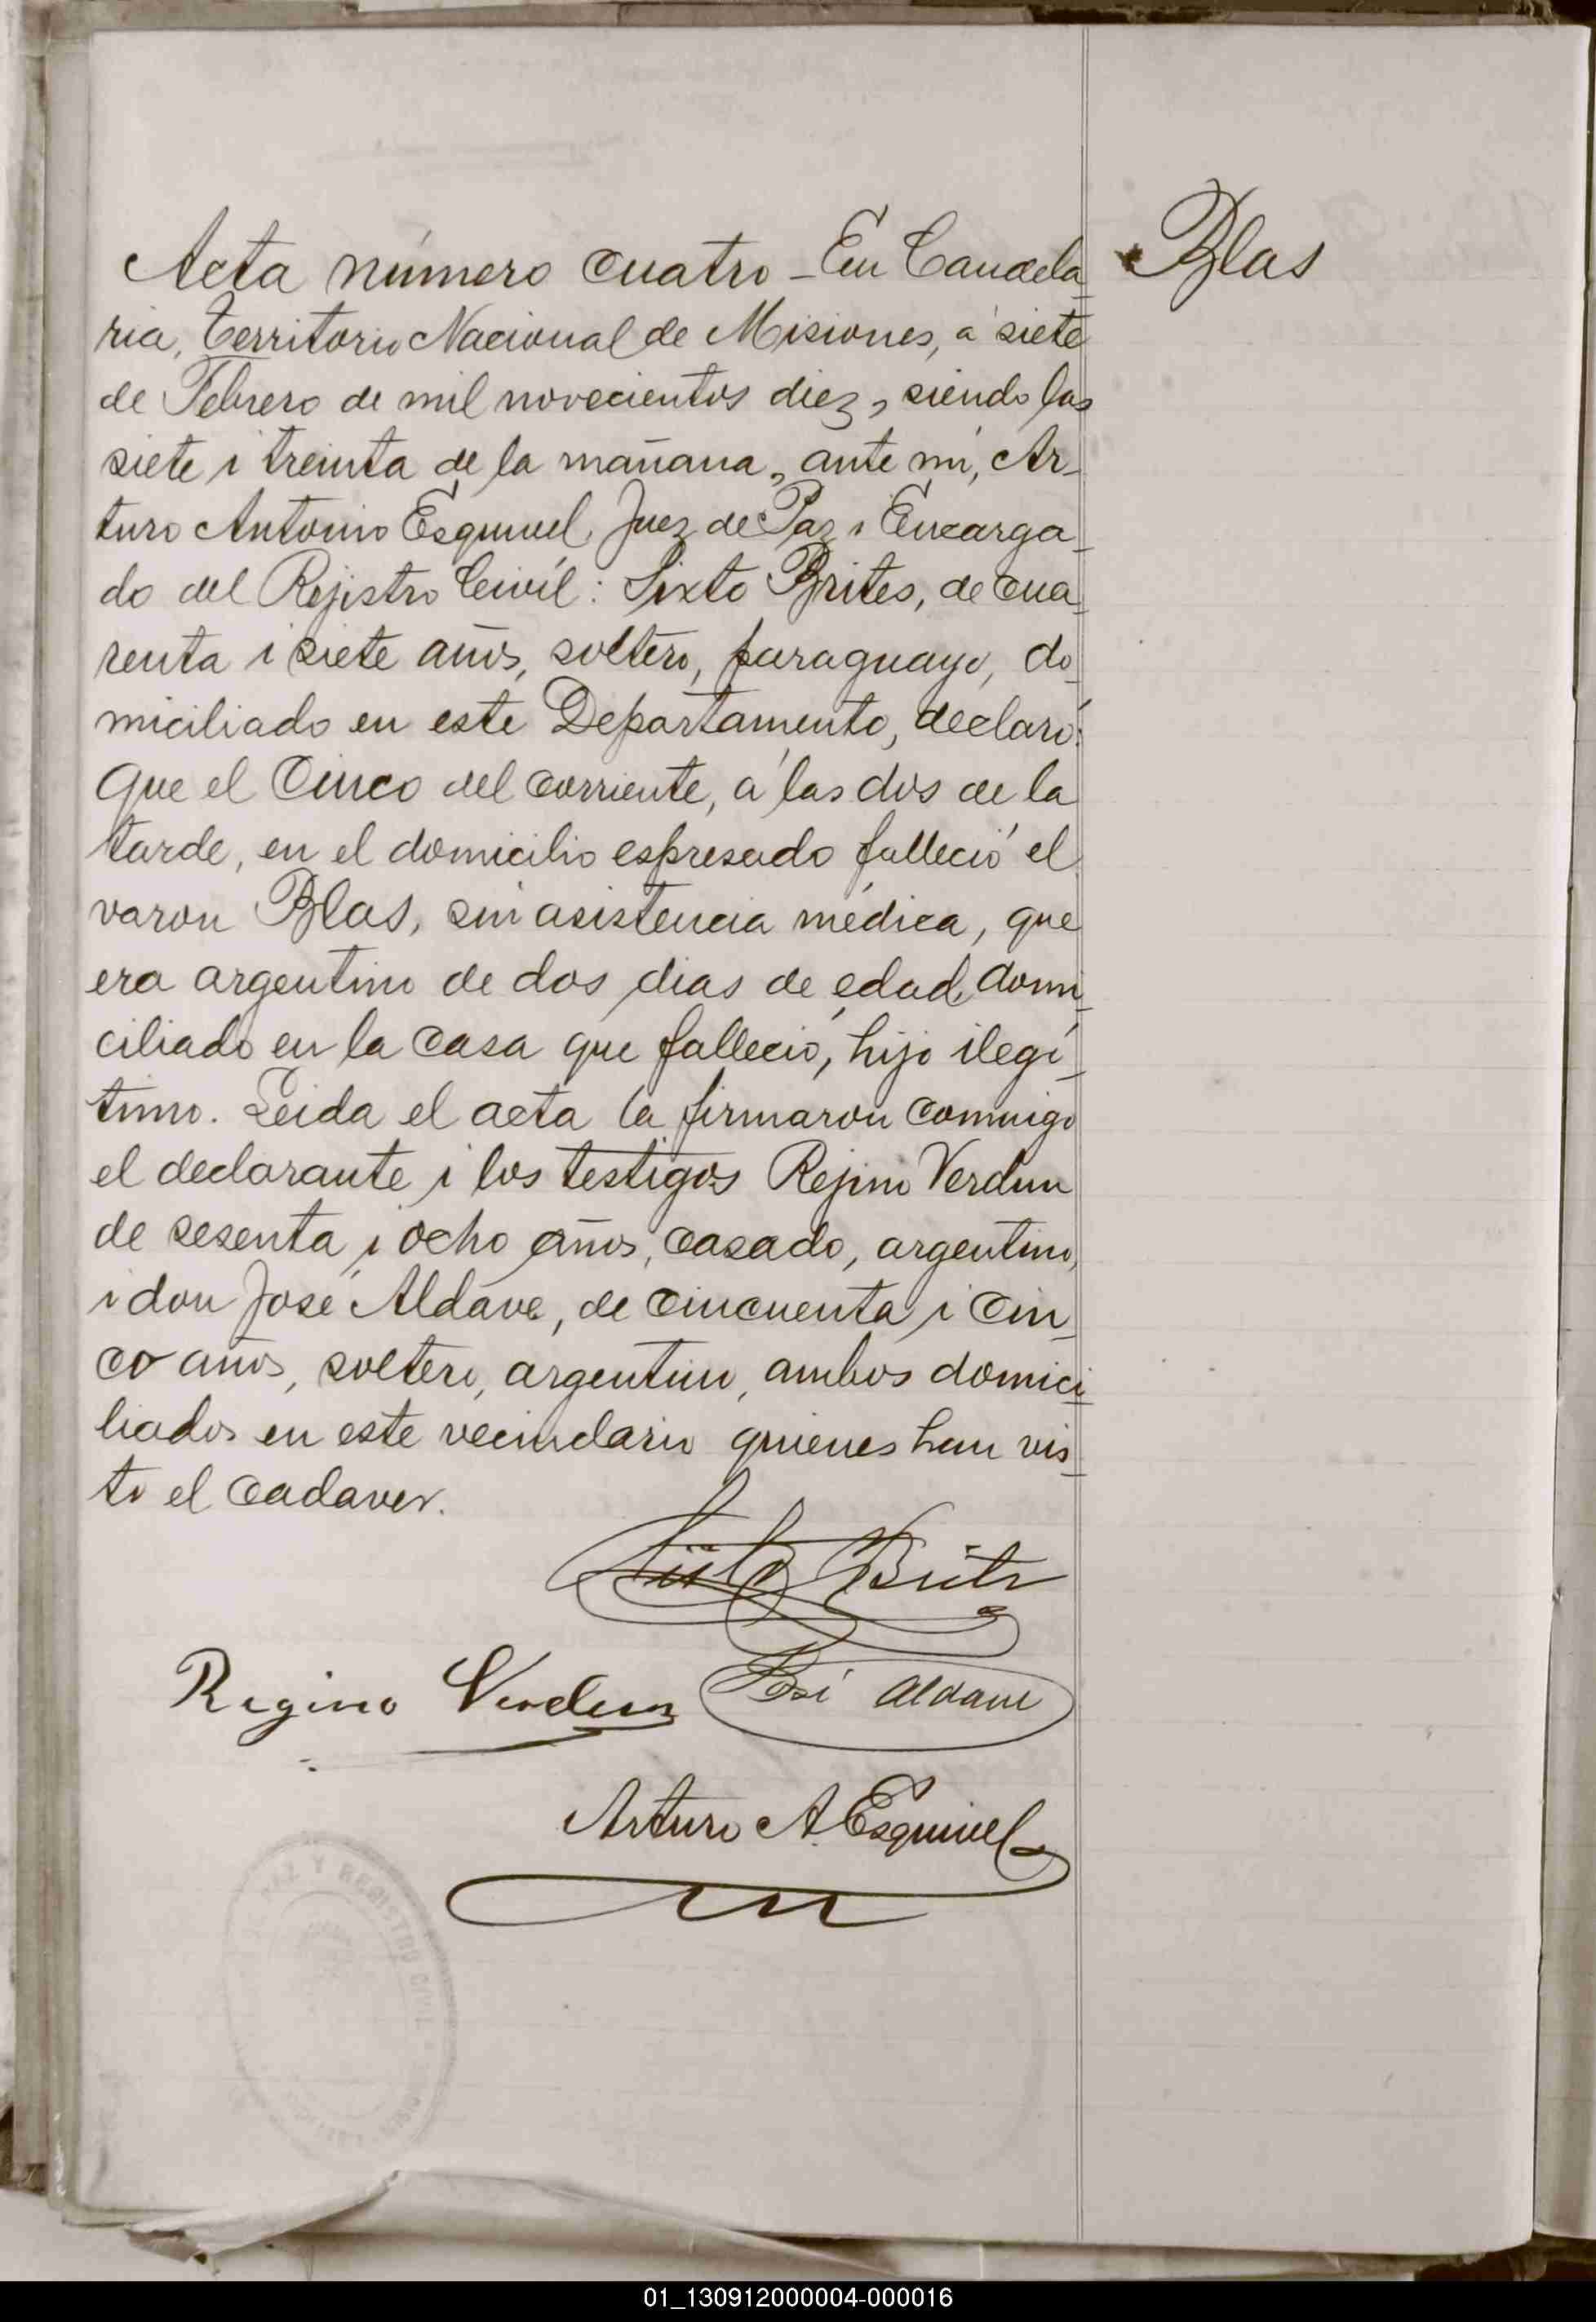 Acta número cuatro – En Candela-
Blas
ria, Territorio Nacional de Misiones, á siete
de Febrero de mil novecientos diez, siendo las
siete i treinta de la mañana, ante mí, Ar-
turo Antonio Esquivel, Juez de Paz i Encarga-
do del Rejistro Civil: Sixto Brites, de cua-
renta i siete años, soltero, paraguayo, do-
miciliado en este Departamento, declaró:
Que el cinco del corriente, á las dos de la
tarde, en el domicilio espresado falleció el
varon Blas, sin asistencia médica, que
era argentino de dos dias de edad, domi-
ciliado en la casa que falleció, hijo ilegí-
timo. Leida el acta la firmaron conmigo
el declarante i los testigos Rejino Verdun
de sesenta i ocho años, casado, argentino,
i don José Aldave, de cincuenta i cin-
co años, soltero, argentino, ambos domici-
liados en este vecindario quienes han vis-
to el cadaver.
Sixto Brites
Regino Verdun José Aldave
Arturo A. Esquivel
PAZ Y REGISTRO CIVIL
01_130912000004-000016